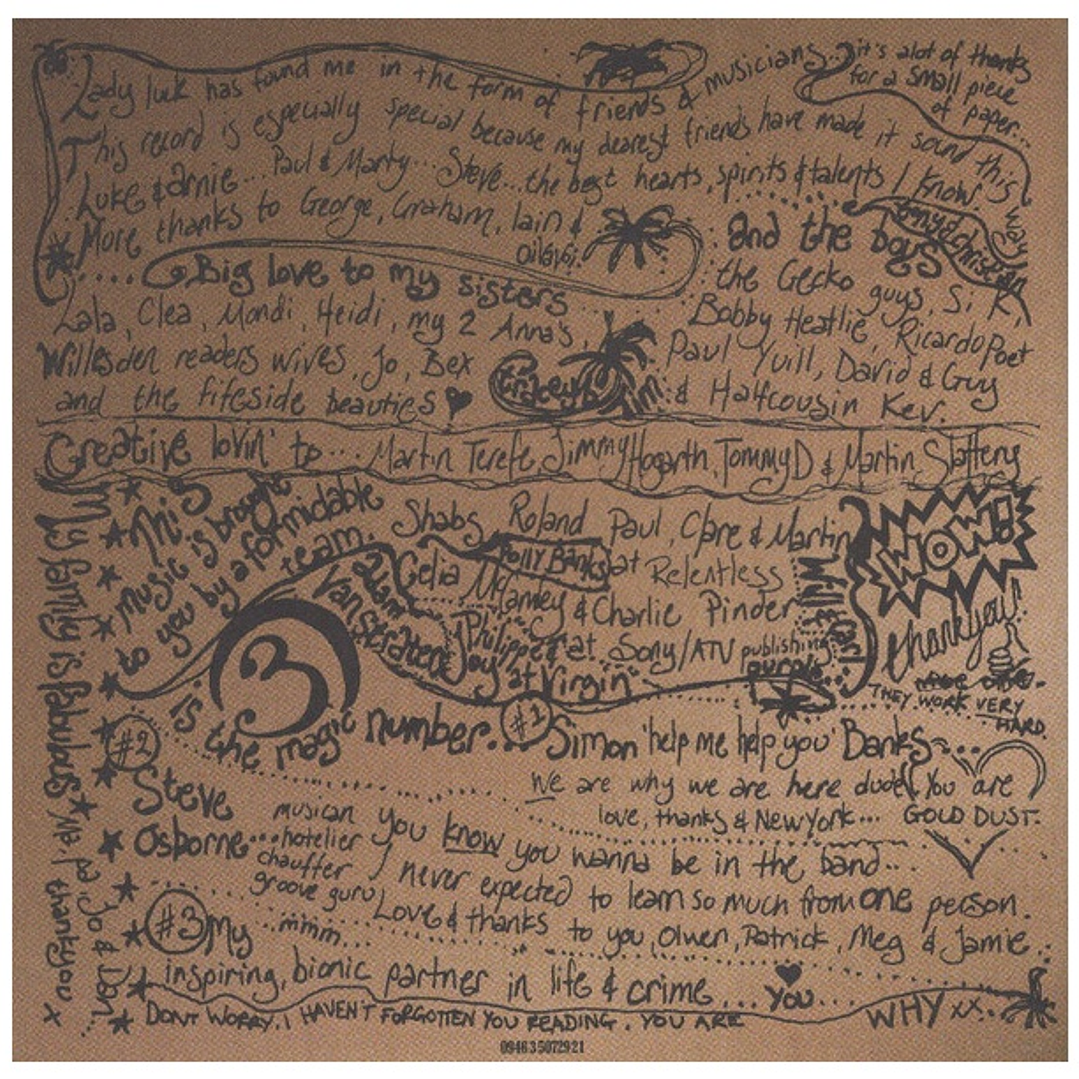 Lady luck has found me in the form of friends & musicians...
it's alot of thanks
for a small piece
of paper...
This record is especially special because my dearest friends have made it sound this way
Luke & arnie... Paul & Marty... Steve... the best hearts, spirits & talents I know
More thanks to George, Graham, Iain &
and the boys
the Gecko guys, Si K,
Bobby Heatlie, Ricardo Poet
Paul Yuill, David & Guy
& Halfcousin Kev.
Big love to my sisters
Lala, Clea, Mondi, Heidi, my 2 Anna's,
Willesden readers wives, Jo, Bex
and the fireside beauties
Creative lovin' to... Martin Terefe, Jimmy Hogarth, Tommy D & Martin Slattery
This
music is brought
to you by a formidable
team.
Shabs, Roland Paul, Clare & Martin
at Relentless
Polly Banks
Celia McCamley & Charlie Pinder
Philippe at Sony/ATV publishing
Joy at Virgin
WOW!
thankyou!
THEY WORK VERY
HARD.
3
is the magic number...
#1 Simon 'help me help you' Banks...
We are why we are here dude! You are
love, thanks & New York... GOLD DUST.
#2
Steve
Osborne...
musican
hotelier
chauffer
groove guru
mmm...
you know you wanna be in the band...
I never expected to learn so much from one person.
Love & thanks to you, Olwen, Patrick, Meg & Jamie
#3 My
inspiring, bionic partner in life & crime... you
DONT WORRY, I HAVEN'T FORGOTTEN YOU READING. YOU ARE WHY xx.
My family is fabulous
thankyou x
094635072921